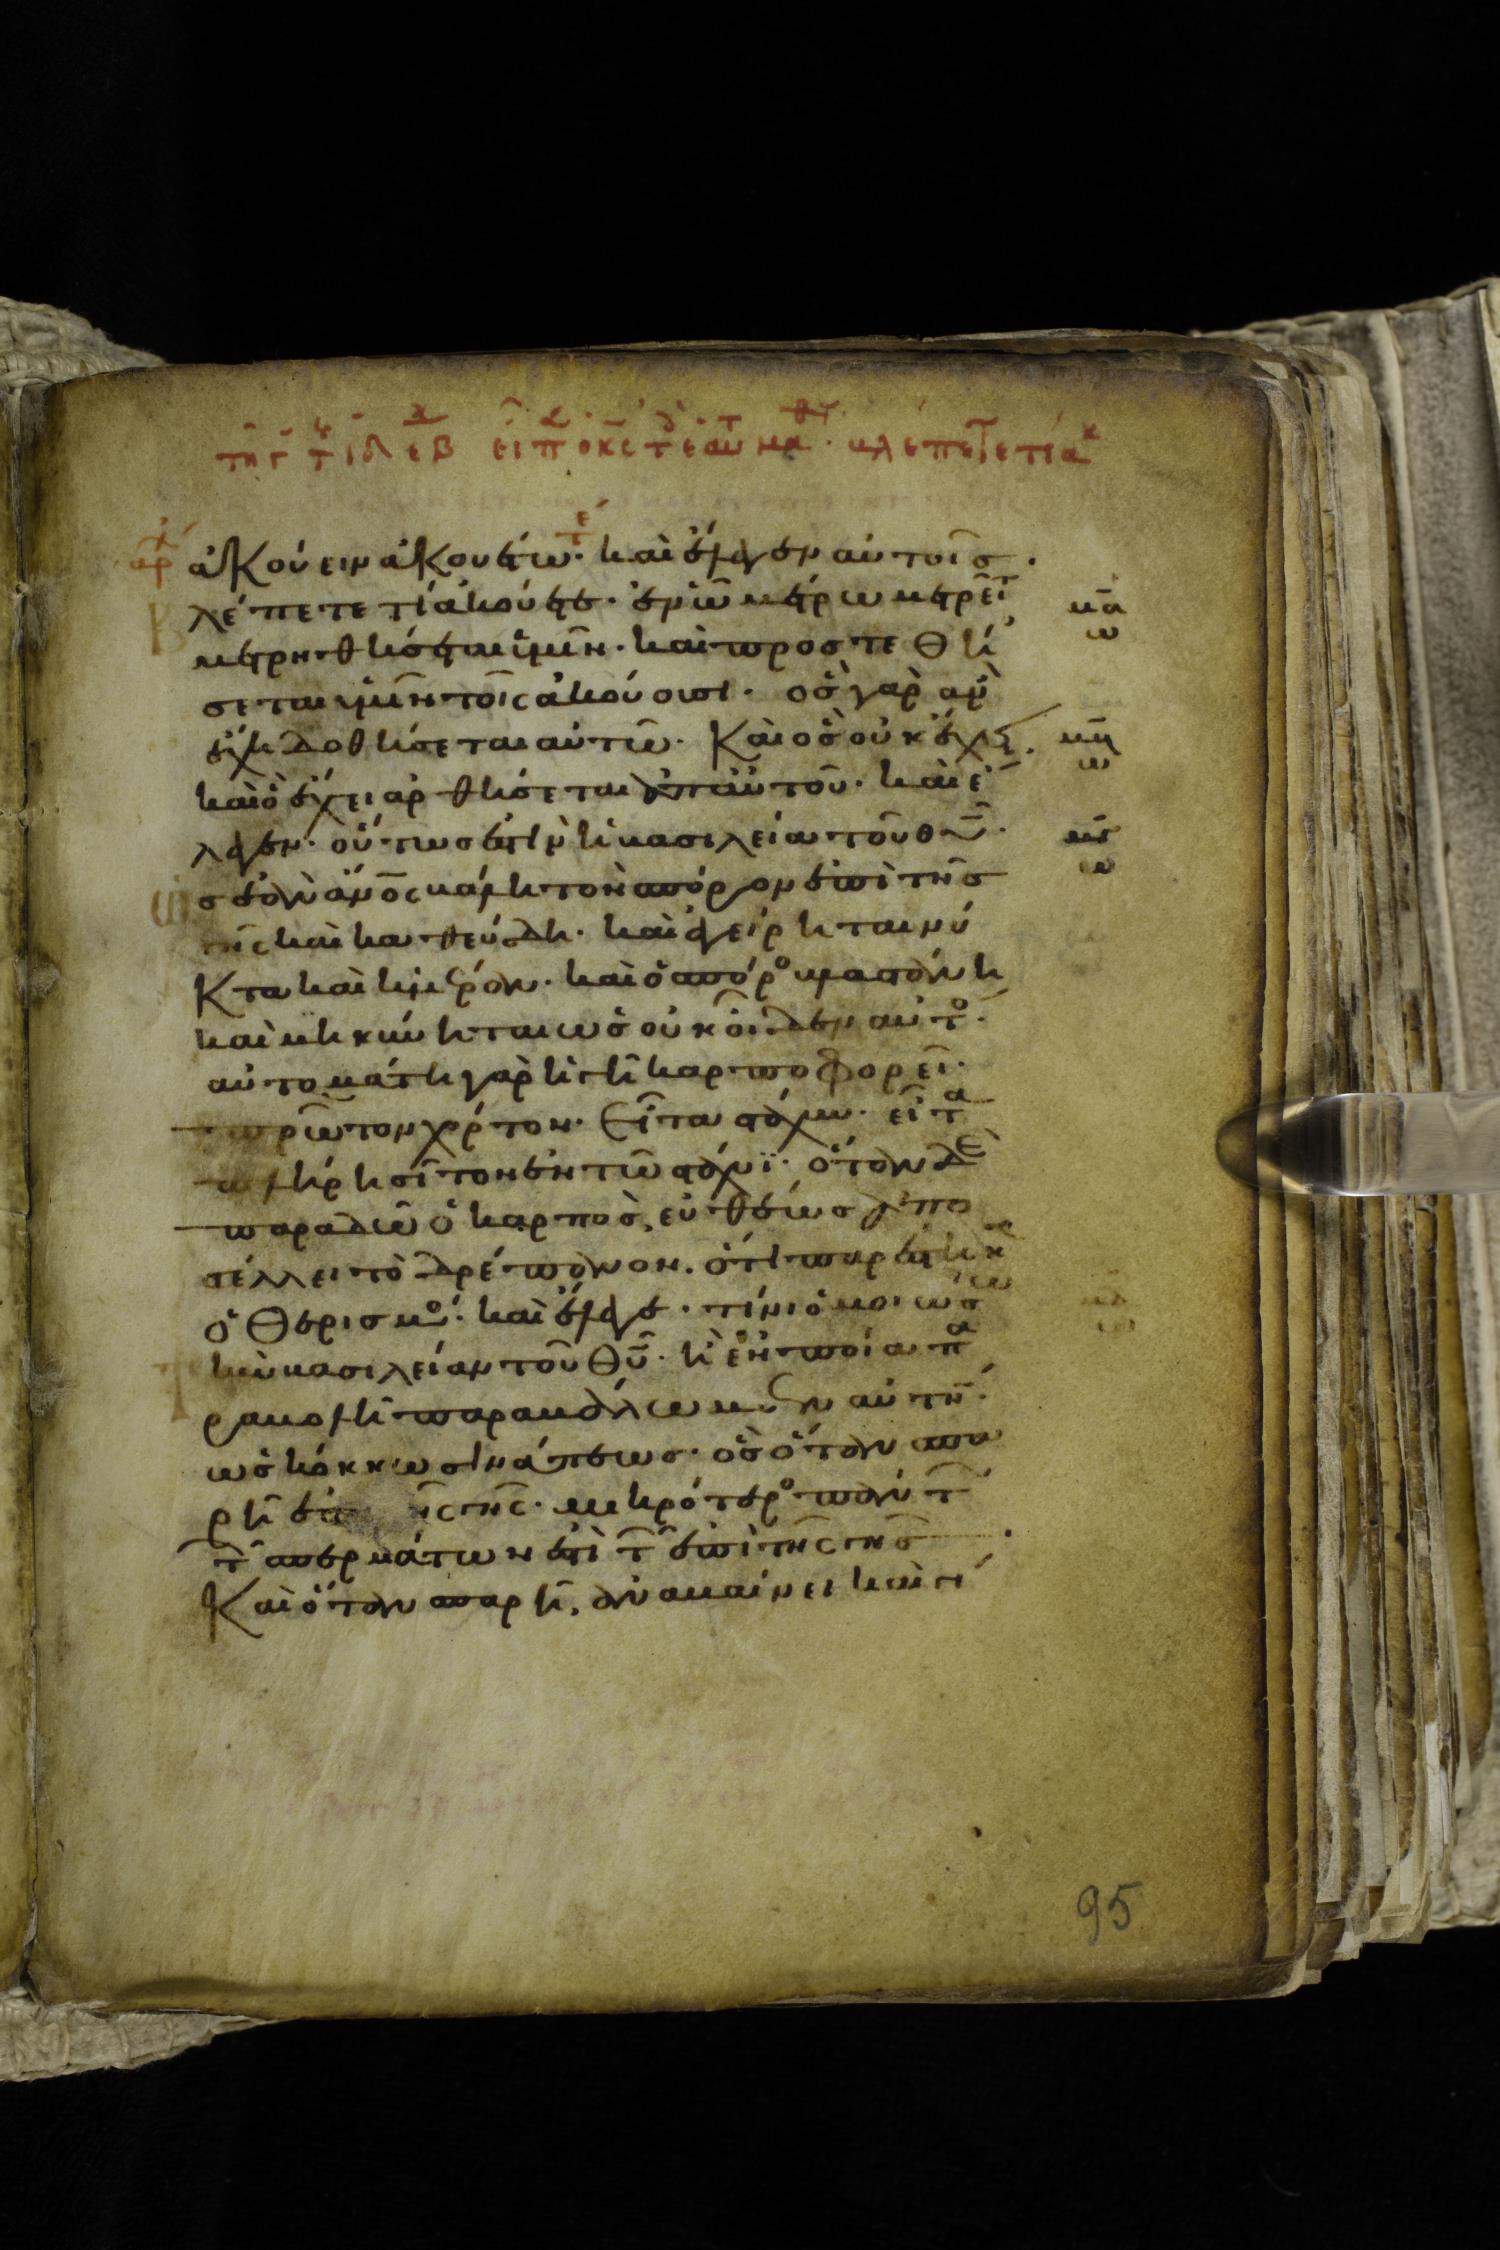 ἀκούειν ἀκουέτω· καὶ ἔλεγεν αὐτοῖς·
λέπετε τί ἀκούετε· ἐν ᾧ μέτρω μετρεῖτ
μετρηθήσεται ὑμῖν· καὶ προστεθή
σεται ὑμῖν τοῖς ἀκούουσι· ὃς γὰρ ἂν
ἔχη δοθήσεται αὐτῶ· Καὶ ὃς οὐκ ἔχει·
καὶ ὃ ἔχει ἀρθήσεται ἀπ αὐτοῦ· καὶ ἔ
λεγεν· οὕτως ἐστὶν ἡ βασιλεία τοῦ θῦ·
ς ἐὰν ἄνος βάλη τὸν σπόρον ἐπὶ τῆς
γῆς καὶ καθεύδη· καὶ ἐγείρηται νύ
Κτα καὶ ἡμέραν· καὶ ὁ σπόρο βλαστάνη
καὶ μηκύνηται ὡς οὐκ οἶδεν αὐτο·
αὐτομάτη γὰρ ἡ γῆ καρποφορεῖ·
πρῶτον χόρτον· Εἶτα στάχυν· εἶτα
πλήρη σῖτον ἐν τῶ στάχυϊ· ὅταν δὲ
παραδῶ ὁ καρπὸς, εὐθέως ἀπο
στέλλει τὸ δρέπανον· ὅτι παρέστηκε
ὁ θερισμό· καὶ ἔλεγε· τίνι ὁμοιώσω
τὴν βασιλείαν τοῦ θῦ· ἢ ἐν ποία πα
ραβολῆ παραβάλωμεν αὐτήν·
ὡς κόκκω σινάπεως· ὃς ὅταν σπα
ρῆ ἐπ τῆς γῆς· μικρότερο πάντ
τ σπερμάτων ἐστὶ τ ἐπὶ τῆς γῆς
Καὶ ὅταν σπαρῆ, ἀναβαίνει καὶ γί
95